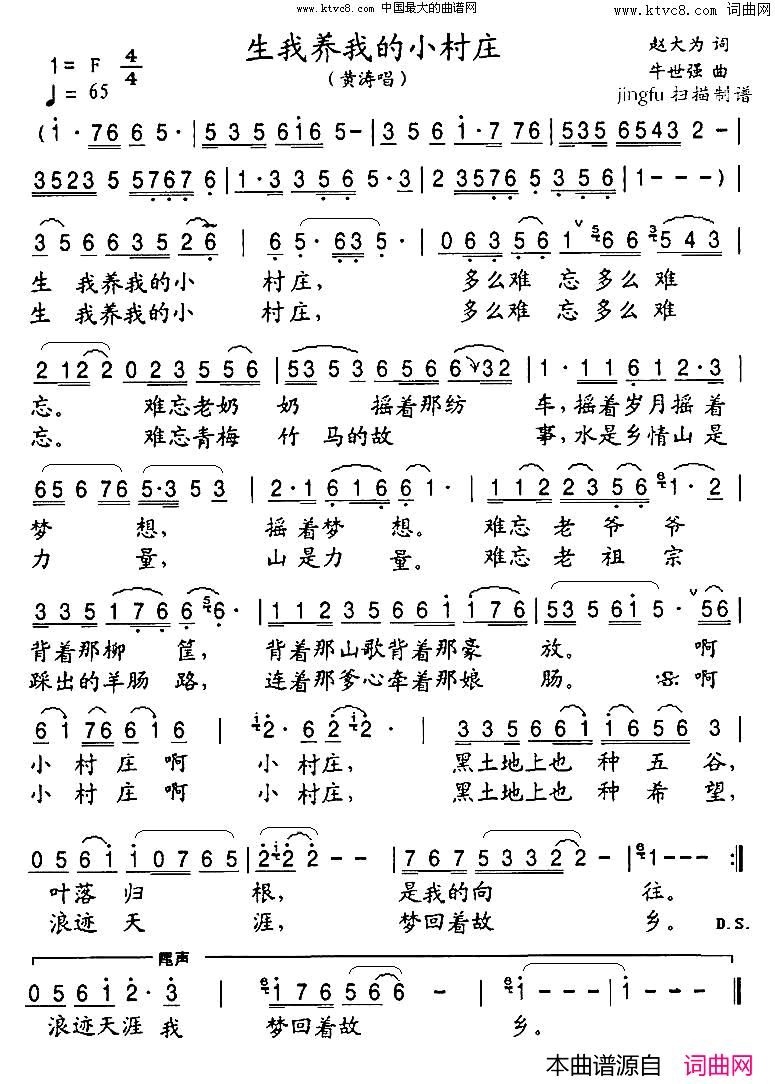 www.ktvc8.com 中国最大的曲谱网
www.ktvc8.com 词曲网
生我养我的小村庄
(黄涛唱)
1= F 4/4
♩= 65
赵大为 词
牛世强 曲
jingfu 扫描制谱
(i· 76 6 5· | 5 3 5 6i6 5· | 3 5 6 i·7 76 | 535 6543 2 - |
3523 5 5767 6 | 1·3 3 5 6 5·3 | 2 3567 5 3 5 6 | 1 - - - ) |
3 5 6 6 3 5 2 6 | 6 5· 63 5· | 0 6 3 5 6 1 ∨ 5 6 6 3 5 4 3 |
生 我养我的小 村庄, 多么难 忘 多么难
生 我养我的小 村庄, 多么难 忘 多么难
2 12 2 0 2 3 5 5 6 | 53 5 3 6 5 6 6 32 | 1· 1 1 6 2·3 |
忘。 难忘老奶 奶 摇着那纺 车,摇着岁月摇着
忘。 难忘青梅 竹 马的故 事,水是乡情山是
65 6 76 5·3 5 3 | 2·1 6 1 6 6 1· | 1 1 2 2 3 5 6 e 1· 2 |
梦 想, 摇着梦 想。 难忘 老 爷 爷
力 量, 山是力 量。 难忘 老 祖 宗
3 3 5 1 7 6 6 5 6· | 1 1 2 3 5 6 6 i i 7 6 | 53 5 6i 5· ∨ 56 |
背着那柳 筐, 背着那山歌背着那豪 放。 啊
踩出的羊肠 路, 连着那爹心牵着那娘 肠。 𝄋 啊
6 i 76 6 i 6 | i 2· 6 2 i 2· | 3 3 5 6 6 i i 6 5 6 3 |
小 村 庄 啊 小 村庄, 黑土地上也 种 五 谷,
小 村 庄 啊 小 村庄, 黑土地上也 种 希 望,
0 5 6 i i 0 7 6 5 | 2· i 2· 2 - - | 7 6 7 5 3 3 2 2 - | e 1 - - - :||
叶落 归 根, 是我的向 往。
浪迹 天 涯, 梦回着故 乡。 D.S.
尾声
0 5 6 i 2· 3 | e i 7 6 5 6 6 - | e i - i - ||
浪迹天涯 我 梦回着故 乡。
本曲谱源自 词曲网